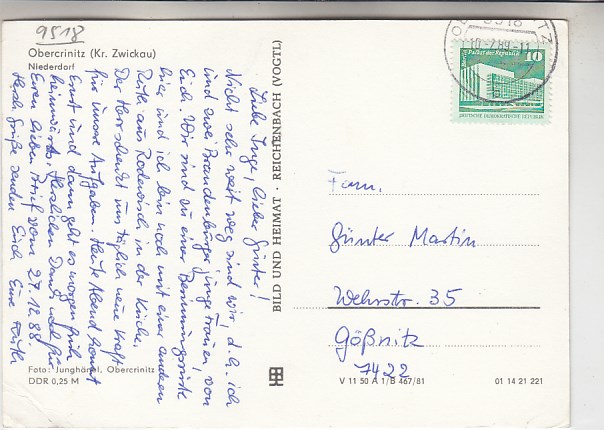 9518
Obercrinitz (Kr. Zwickau)
Niederdorf
Liebe Inge, lieber Günter!
Nicht sehr weit weg sind wir, d.h. ich
und zwei Brandenburger junge Frauen, von
Euch. Wir sind zu einer Besinnungsrüste
hier und ich bin noch mit einer anderen
Ruth aus Rodewisch in der Küche.
Der Herr schenkt uns täglich neue Kraft
für unsere Aufgaben. Heute Abend kommt
Ernst und dann geht es morgen früh
heimwärts. Herzlichen Dank noch für
Euren lieben Brief vom 27.12.88.
Herzl. Grüße senden Euch Eure Ruth
Foto: Junghänel, Obercrinitz
DDR 0,25 M
BILD UND HEIMAT · REICHENBACH (VOGTL)
9518
10.-2.89-11
Palast der Republik
10
DEUTSCHE DEMOKRATISCHE REPUBLIK
Fam.
Günter Martin
Wehrstr. 35
Gößnitz
7422
V 11 50 A 1/B 467/81
01 14 21 221